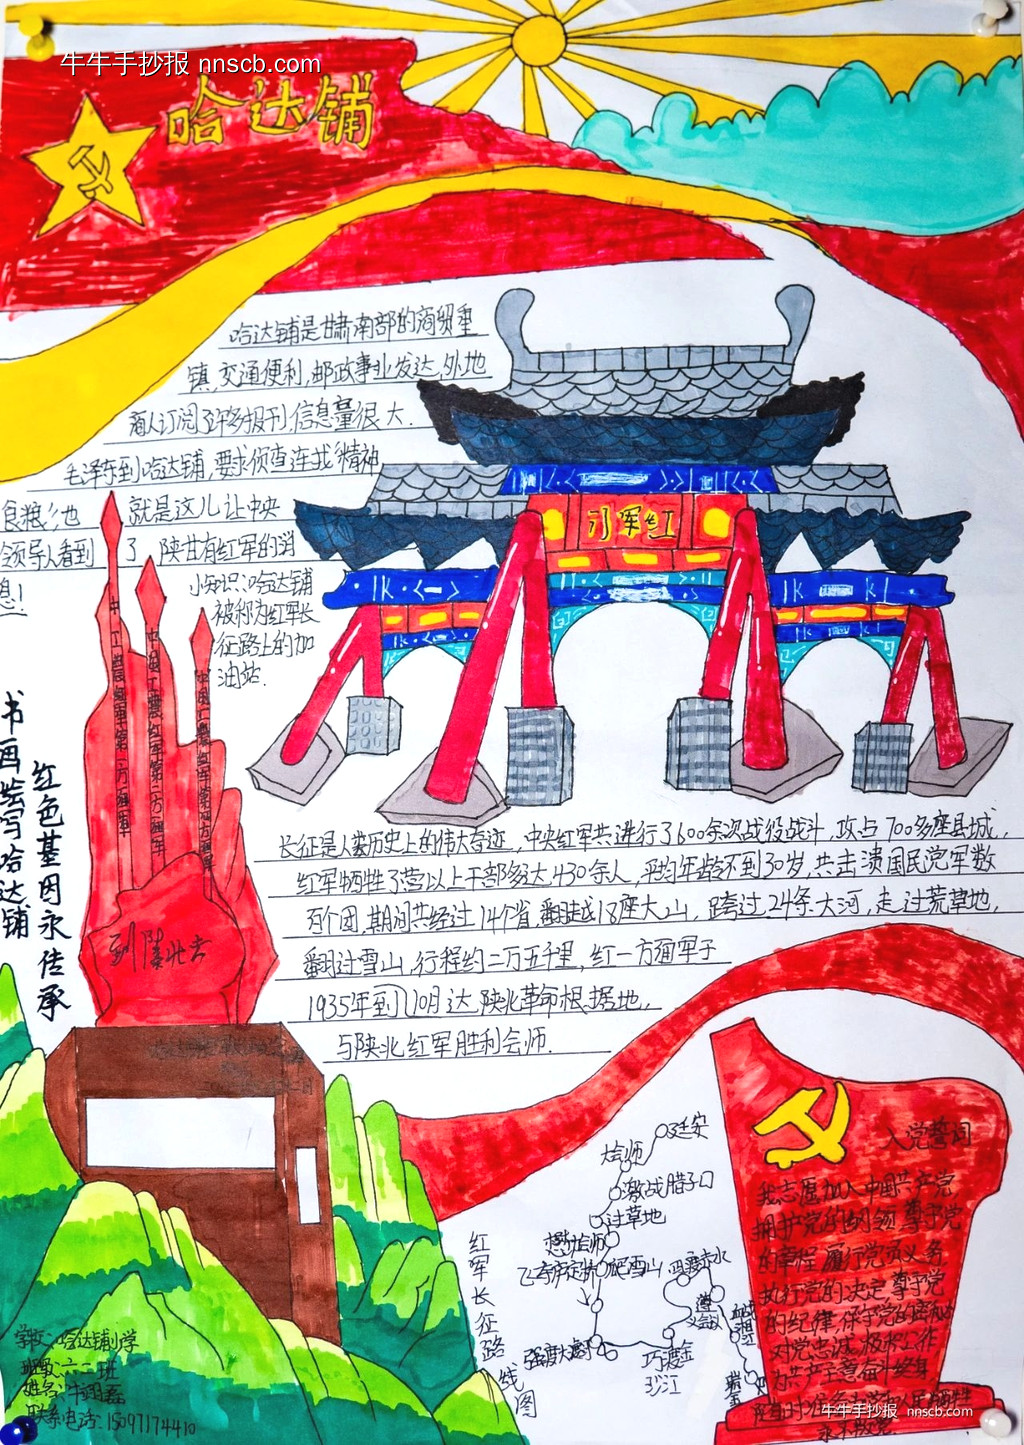 牛牛手抄报 nnscb.com
哈达铺
哈达铺是甘肃南部的商贸重
镇,交通便利,邮政事业发达,外地
商人订阅了许多报刊,信息量很大.
毛泽东到哈达铺,要求侦查连找"精神
食粮",他 就是这儿让中央
领导人看到了 陕甘有红军的消
息!
小知识:哈达铺
被称为红军长
征路上的加
油站.
红军门
书画绘写哈达铺
红色基因永传承
到陕北去
长征是人类历史上的伟大奇迹,中央红军共进行了600余次战役战斗,攻占700多座县城,
红军牺牲了营以上干部多达430余人,平均年龄不到30岁,共击溃国民党军数
百个团,期间共经过14个省,翻越18座大山,跨过24条大河,走过荒草地,
翻过雪山,行程约二万五千里,红一方面军于
1935年到10月达陕北革命根据地,
与陕北红军胜利会师.
延安
大会师
激战腊子口
过草地
懋功会师
爬雪山
四渡赤水
飞夺泸定桥
遵义会议
血战湘江
强渡大渡河
巧渡金沙江
瑞金
红军长征路线图
入党誓词
我志愿加入中国共产党,
拥护党的纲领,尊守党
的章程,履行党员义务,
执行党的决定,尊守党
的纪律,保守党的秘密,
对党忠诚,积极工作,
为共产主意奋斗终身,
永不叛党.
学校:哈达铺小学
班级:六二班
联系电话:15097174410
牛牛手抄报 nnscb.com